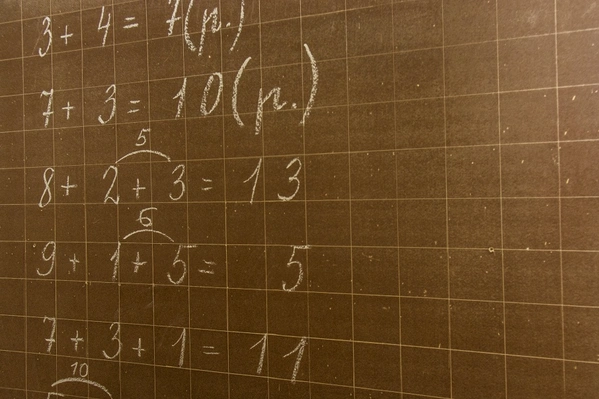 3 + 4 = 7 (р.)
7 + 3 = 10 (р.)
5
8 + 2 + 3 = 13
6
9 + 1 + 5 = 5
7 + 3 + 1 = 11
10